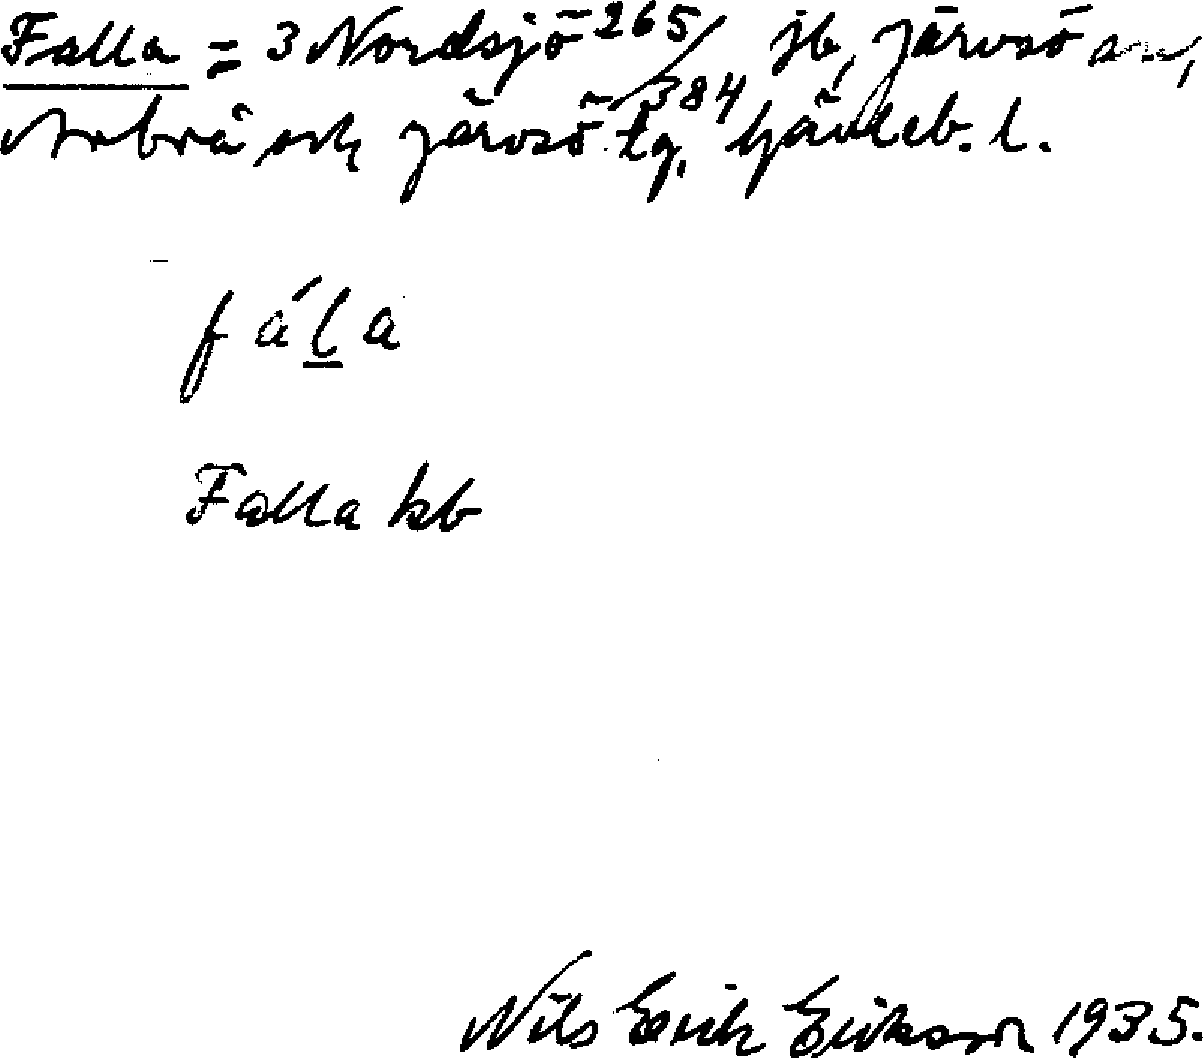 Falla = 3 Nordsjö 265/384 jb, Järvsö sn,
Arbrå och Järvsö tg, Gävleb. l.
fála
Falla kb
Nils Erik Eriksson 1935.